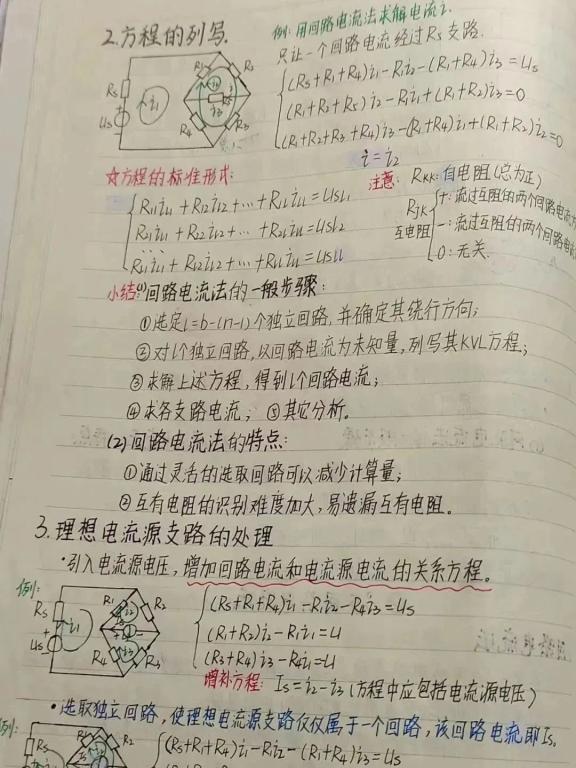 2.方程的列写.
例:用回路电流法求解电流i.
只让一个回路电流经过R5支路.
(Rs+R1+R4)i1-R1i2-(R1+R4)i3=Us
(R1+R2+R5)i2-R1i1+(R1+R2)i3=0
(R1+R2+R3+R4)i3-(R1+R4)i1+(R1+R2)i2=0
i=i2
Rs
Us
i1
R1
R2
R4
R3
i3
☆方程的标准形式:
R11il1+R12il2+…+R1lill=Usl1
R21il1+R22il2+…+R2lill=Usl2
……
Rl1il1+Rl2il2+…+Rllill=Usll
注意: RKK:自电阻(总为正)
RjK
互电阻
+:流过互阻的两个回路电流方
-:流过互阻的两个回路电流
0:无关.
小结:(1)回路电流法的一般步骤:
①选定l=b-(n-1)个独立回路,并确定其绕行方向;
②对l个独立回路,以回路电流为未知量,列写其KVL方程;
③求解上述方程,得到l个回路电流;
④求各支路电流; ⑤其它分析。
(2)回路电流法的特点:
①通过灵活的选取回路可以减少计算量;
②互有电阻的识别难度加大,易遗漏互有电阻。
3.理想电流源支路的处理
·引入电流源电压,增加回路电流和电流源电流的关系方程。
例:
Rs
Us
i1
R1
R2
i2
R4
R3
i3
(Rs+R1+R4)i1-R1i2-R4i3=Us
(R1+R2)i2-R1i1=U
(R3+R4)i3-R4i1=U
增补方程: Is=i2-i3(方程中应包括电流源电压)
·选取独立回路,使理想电流源支路仅仅属于一个回路,该回路电流即Is。
例:
Rs
R1
R2
(Rs+R1+R4)i1-R1i2-(R1+R4)i3=Us